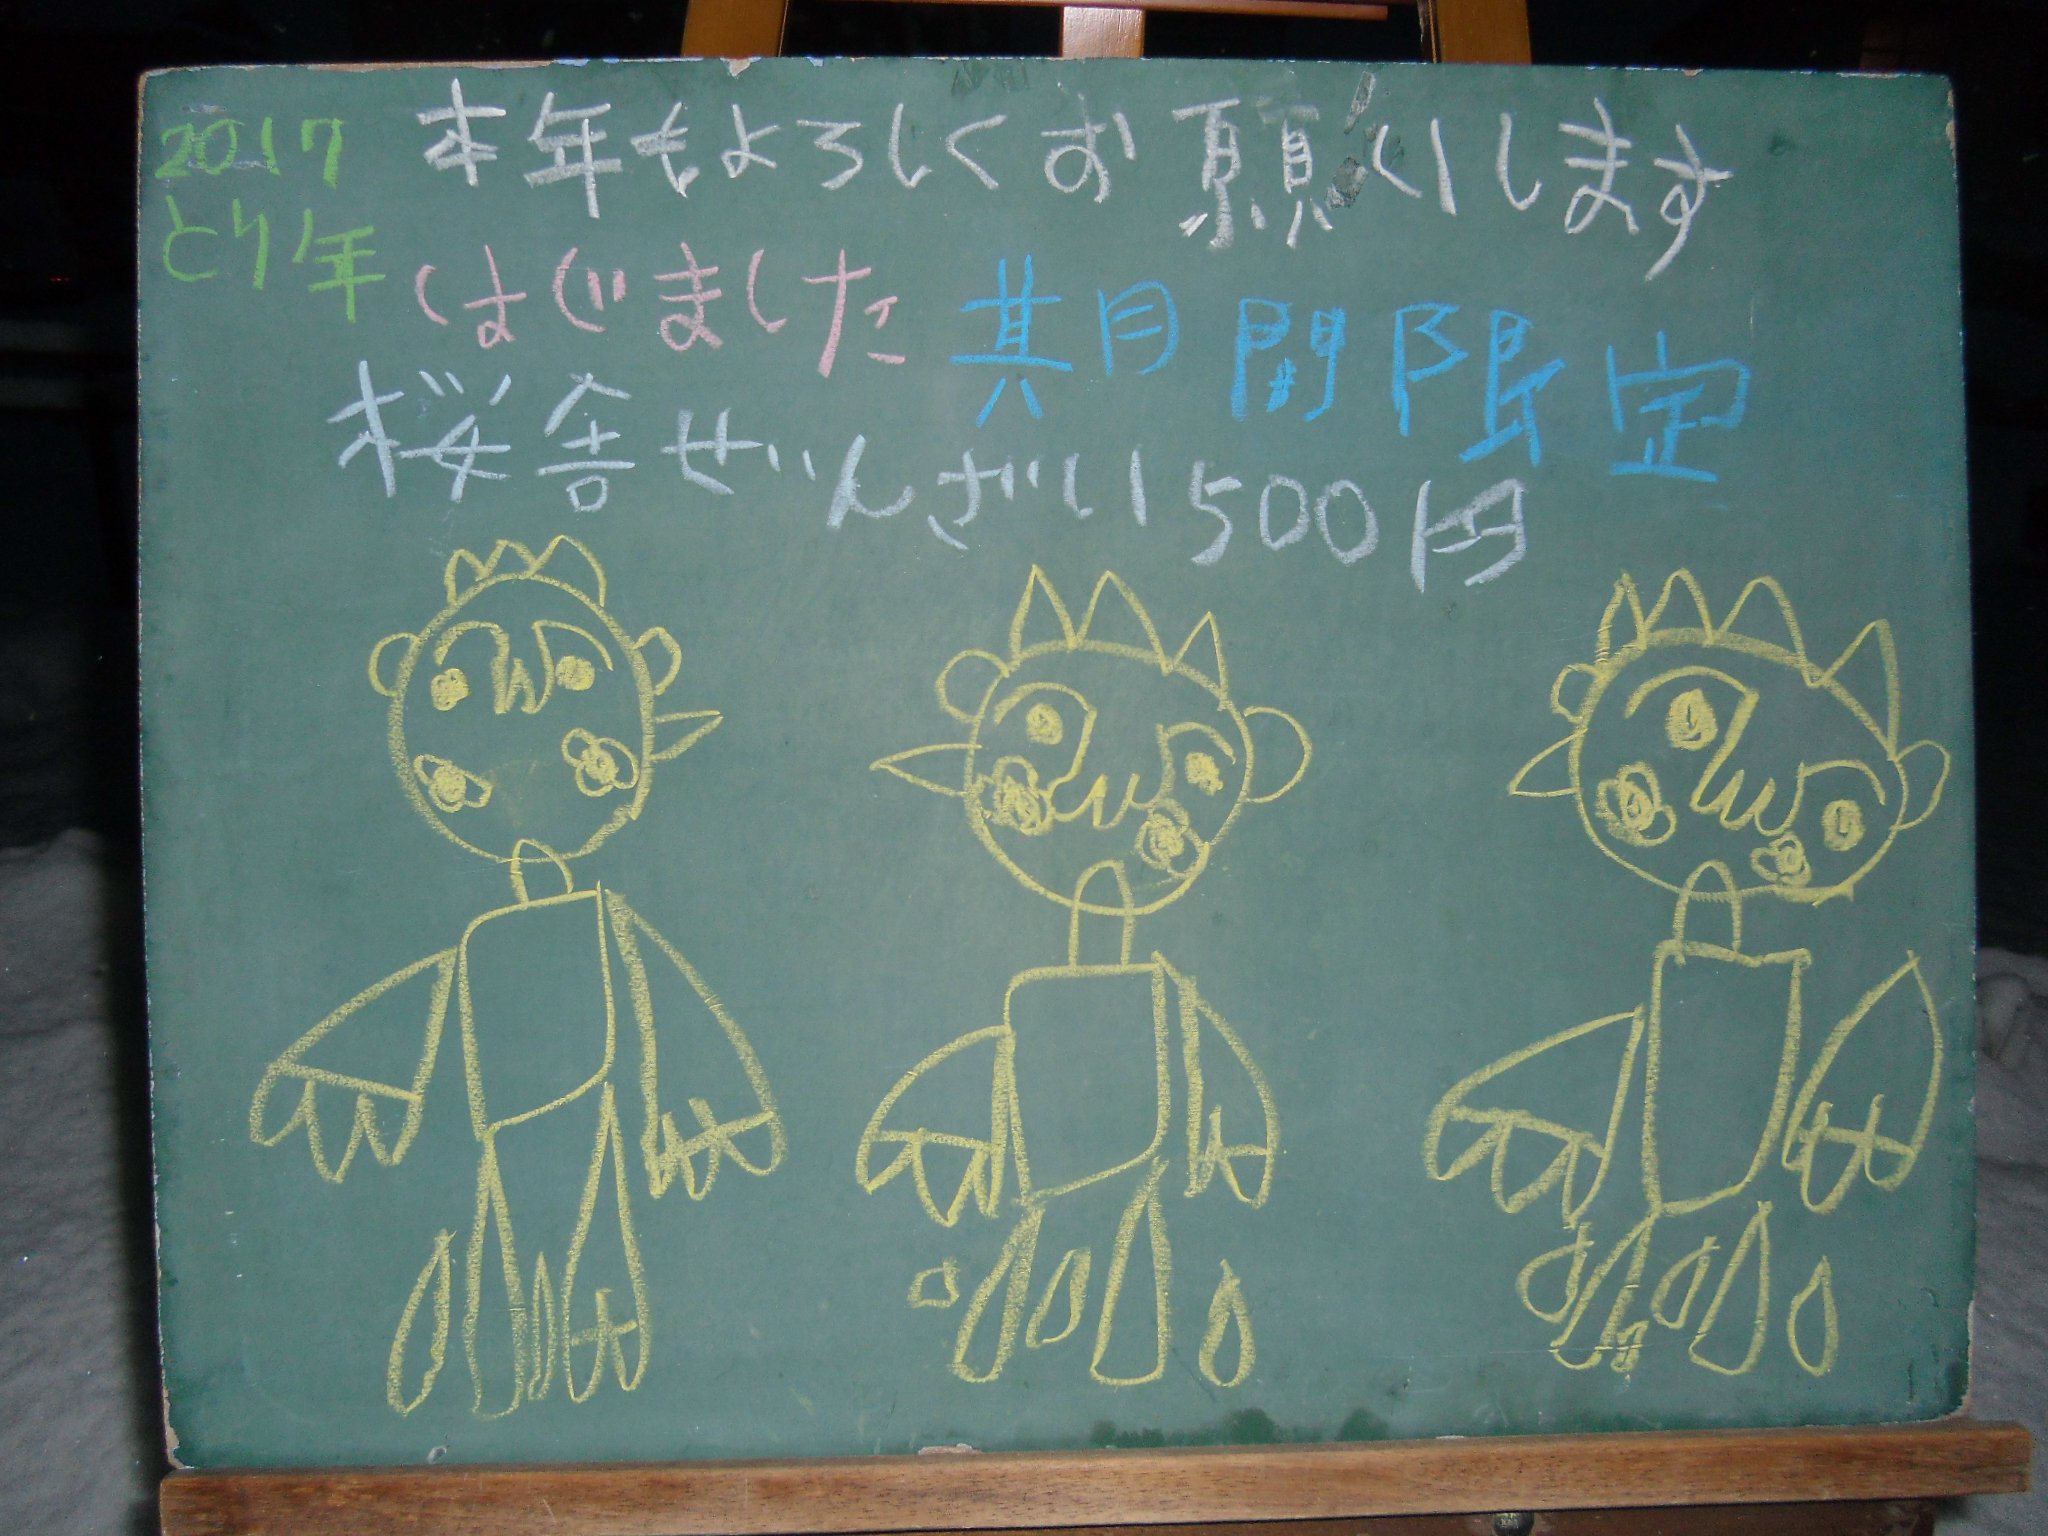 2017
とり年
本年もよろしくお願いします
はじめました 期間限定
桜舎ぜんざい500円